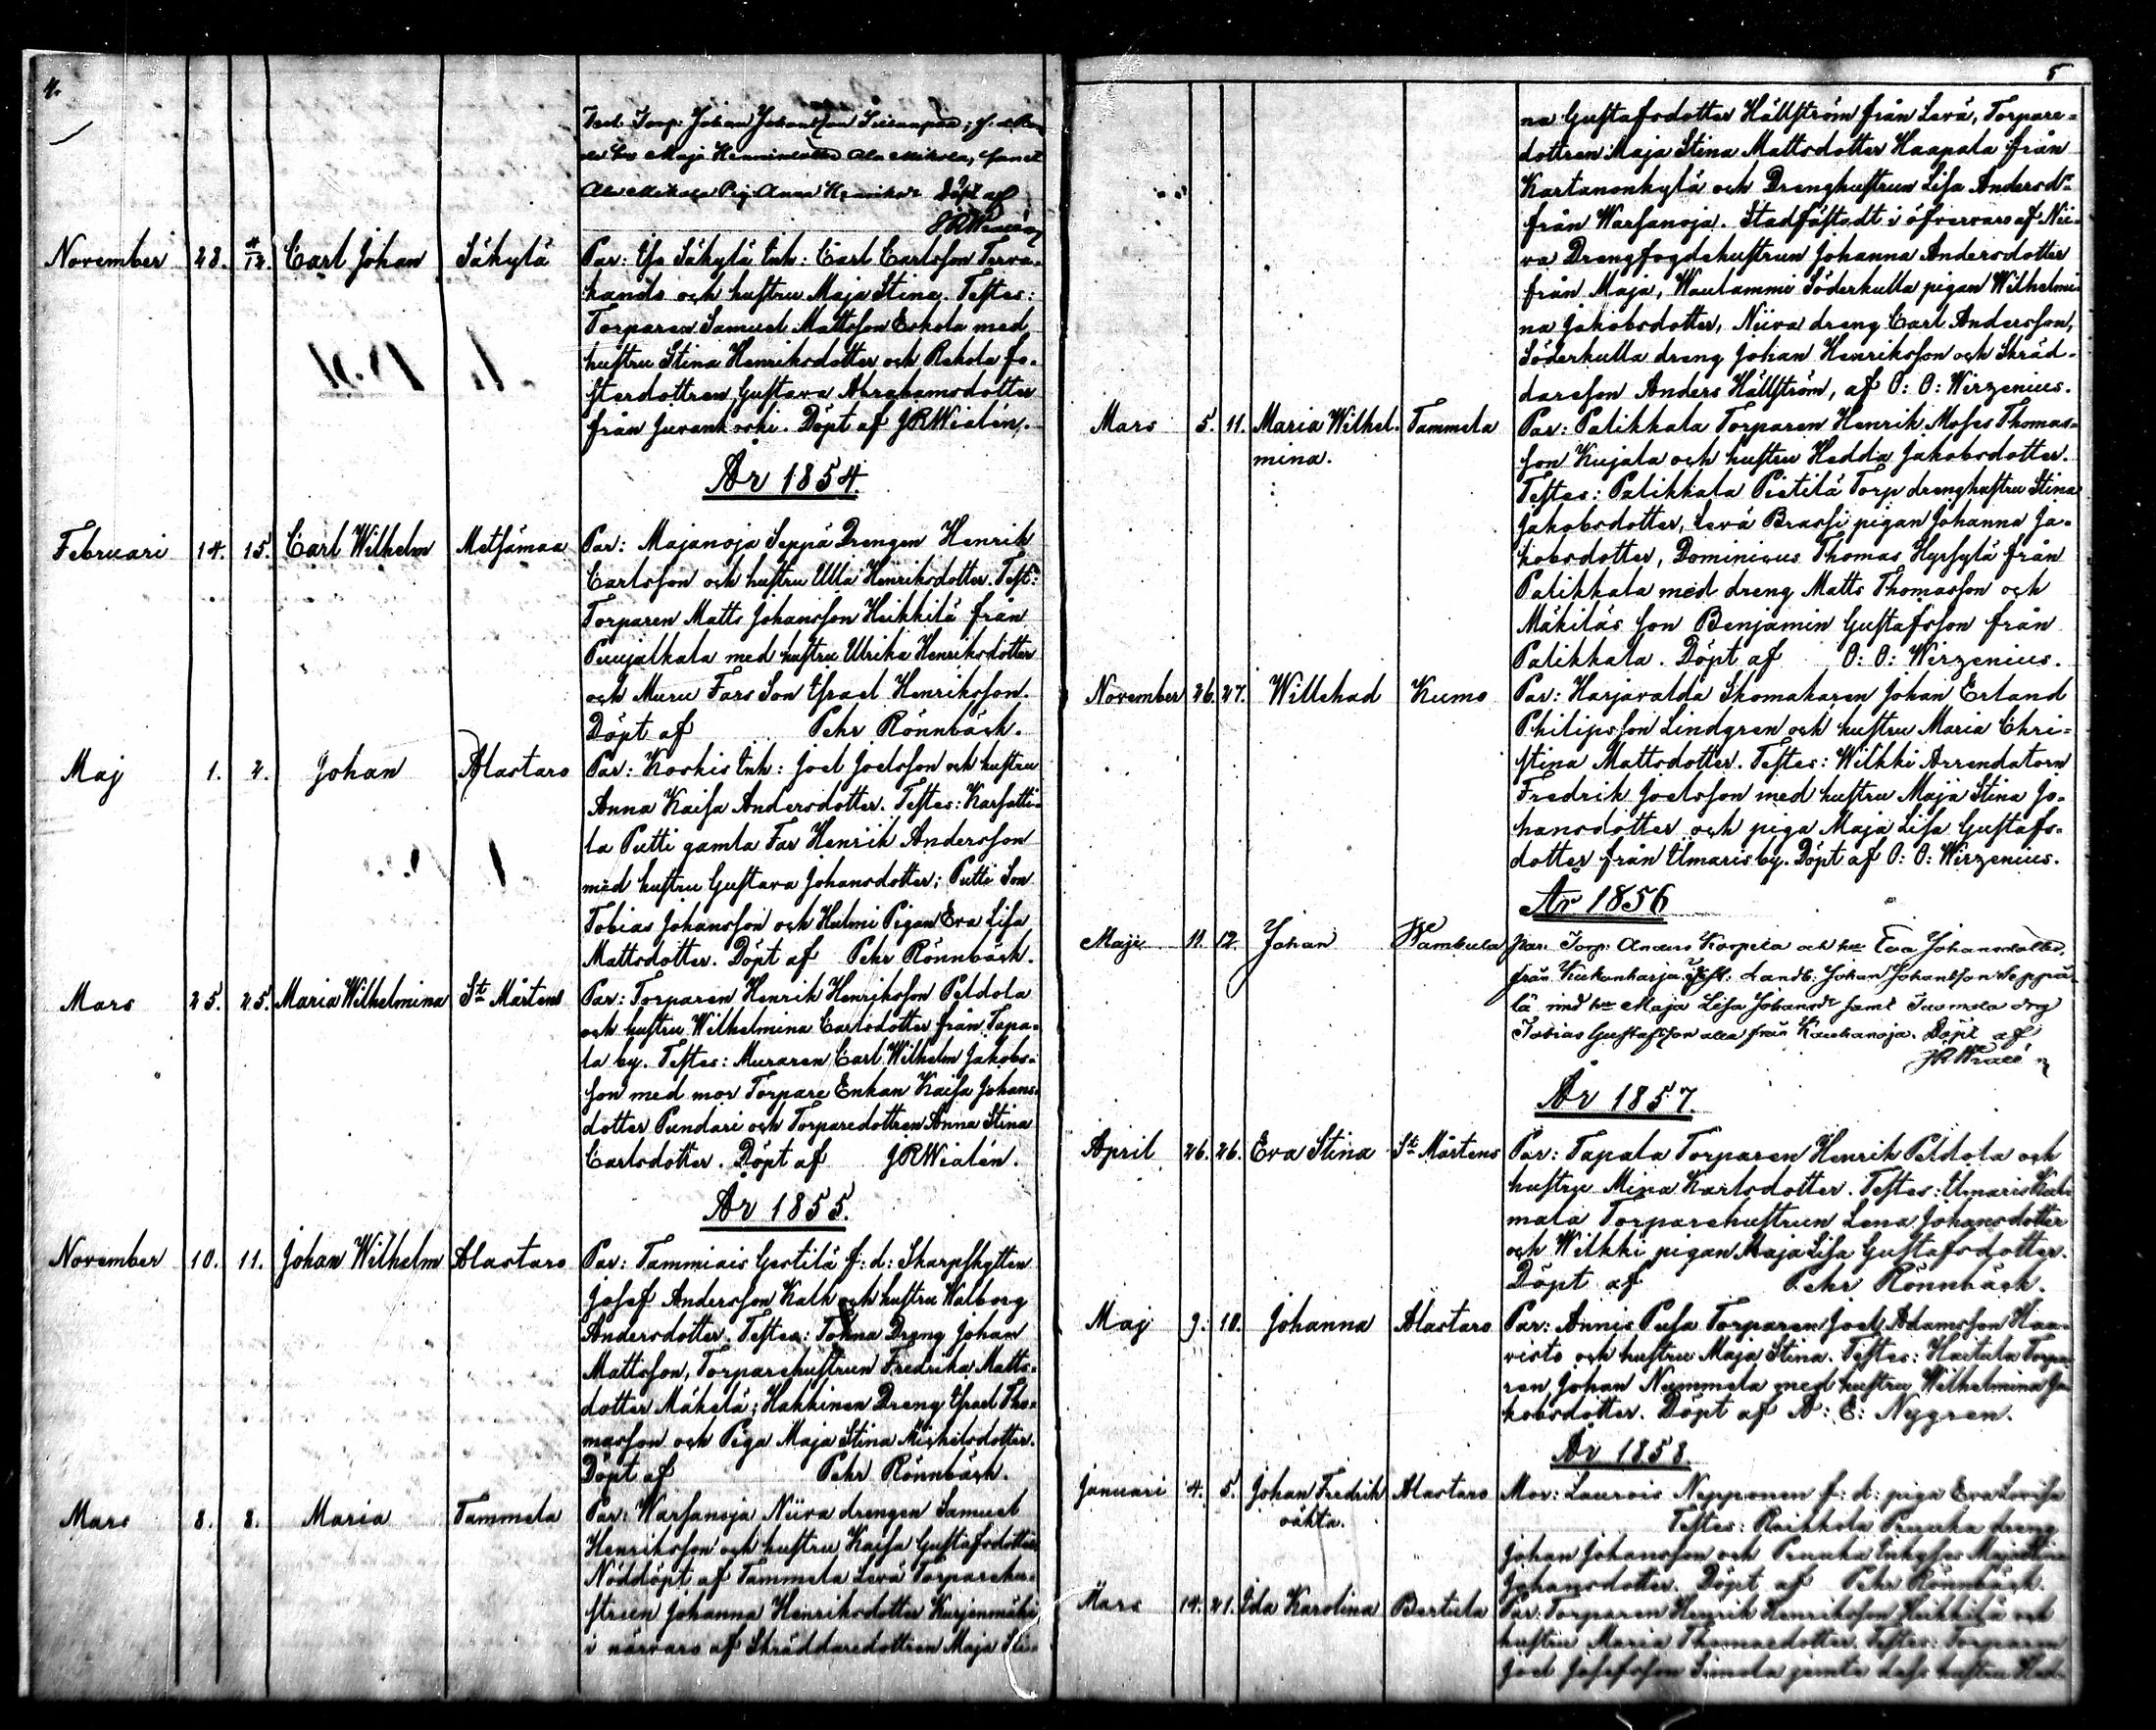 4.
Test. Torp. Johan Johansson
Maja Henriksdotter Ala Mikola, samt
Ala Mikola Pig. Anna Henriksdr Döpt af
JRWialén
November 28. 4/12. Carl Johan Säkylä Par: Iso Säkylä Inh: Carl Carlsson Terva-
hands och hustru Maja Stina. Testes:
Torparen Samuel Mattsson Eskola med
hustru Stina Henriksdotter och Rekola fo-
sterdottren Gustava Abrahamsdotter
från Juvankoski. Döpt af JRWialén.
År 1854.
Februari 14. 15. Carl Wilhelm Metsämaa Par: Majanoja Seppä Drengen Henrik
Carlsson och hustru Ulla Henriksdotter. Test:
Torparen Matts Johansson Heikkilä från
Puujalkala med hustru Ulrika Henriksdotter
och Muru Fars Son Israel Henriksson.
Döpt af Pehr Rönnbäck.
Maj 1. 2. Johan Alastaro Par: Koskis Inh: Joel Joelsson och hustru
Anna Kaisa Andersdotter. Testes: Karsatti-
la Putti gamla Far Henrik Andersson
med hustru Gustava Johansdotter; Putti Son
Tobias Johansson och Hulmi Pigan Eva Lisa
Mattsdotter. Döpt af Pehr Rönnbäck.
Mars 25. 25. Maria Wilhelmina St Mårtens Par: Torparen Henrik Henriksson Peldola
och hustru Wilhelmina Carlsdotter från Tapa-
la by. Testes: Muraren Carl Wilhelm Jakobs-
son med mor Torpare Enkan Kaisa Johans-
dotter Pundari och Torparedottren Anna Stina
Carlsdotter. Döpt af JRWialén.
År 1855.
November 10. 11. Johan Wilhelm Alastaro Par: Tammiais Gestilä f: d: Skarpskytten
Josef Andersson Kalk och hustru Walborg
Andersdotter. Testes: Tohna Dreng Johan
Mattsson, Torparehustrun Fredrika Matts-
dotter Mäkelä; Hakkinen Dreng Israel Tho-
masson och Piga Maja Stina Michelsdotter.
Döpt af Pehr Rönnbäck.
Mars 8. 8. Maria Tammela Par: Warsanoja Niiva drengen Samuel
Henriksson och hustru Kaisa Gustafsdotter
Nöddöpt af Tammela Levä Torparehu-
strun Johanna Henriksdotter Kurjenmäki
i närvaro af Skräddaredottren Maja Sti-
5
na Gustafsdotter Hällström från Levä, Torpare-
dottren Maja Stina Mattsdotter Haapala från
Kartanonkylä och Drenghustrun Lisa Andersdr
från Warsanoja. Stadfästadt i öfvervaro af Nii-
va Drengfogdehustrun Johanna Andersdotter
från Maja, Waulammi Söderkulla pigan Wilhelmi-
na Jakobsdotter, Niiva dreng Carl Andersson,
Söderkulla dreng Johan Henriksson och Skräd-
dareson Anders Hällström, af O: O: Wirzenius.
Mars 5. 11. Maria Wilhel- Tammela Par: Palikkala Torparen Henrik Moses Thomas-
mina. son Kujala och hustru Hedda Jakobsdotter.
Testes: Palikkala Pietilä Torp drenghustru Stina
Jakobsdotter, Levä Brassi pigan Johanna Ja-
kobsdotter, Dominicus Thomas Hyrsylä från
Palikkala med dreng Matts Thomasson och
Mäkiläs son Benjamin Gustafsson från
Palikkala. Döpt af O: O: Wirzenius.
November 26. 27. Willehad Kumo Par: Harjavalda Skomakaren Johan Erland
Philipsson Lindgren och hustru Maria Chri-
stina Mattsdotter. Testes: Wilkki Arrendatorn
Fredrik Joelsson med hustru Maja Stina Jo-
hansdotter och piga Maja Lisa Gustafs-
dotter från Ilmaris by. Döpt af O: O: Wirzenius.
År 1856
Maji 11 12. Johan Wambula Par. Torp. Anders Korpela och hu Eva Johansdotter,
från Kukonharja. Test. Landb. Johan Johansson Seppä-
lä med hu Maja Lisa Johansdr samt drg
Tobias Gustafsson alla från Kauhanoja. Döpt af
JRWialén
År 1857.
April 26. 26. Eva Stina St Mårtens Par: Tapala Torparen Henrik Peldola och
hustru Mina Karlsdotter. Testes: Ilmaris
mala Torparehustrun Lena Johansdotter
och Wilkki pigan Maja Lisa Gustafsdotter.
Döpt af Pehr Rönnbäck.
Maj 9. 10. Johanna Alastaro Par: Annis Pusa Torparen Joel Adamsson Haa-
visto och hustru Maja Stina. Testes: Haitula Torpa-
ren Johan Nummela med hustru Wilhelmina Ja-
kobsdotter. Döpt af A: E: Nygren.
År 1858.
Januari 4. 5. Johan Fredrik Alastaro Mor: Laurois Nepponen f: d: piga Eva Lovisa
oäkta. Testes: Raikkola Pruuka dreng
Johan Johansson och Pruuka Inhyses Maja Stina
Johansdotter. Döpt af Pehr Rönnbäck.
Mars 14. 21. Ida Karolina Bertula Par: Torparen Henrik Henriksson Heikkilä och
hustru Maria Thomasdotter. Testes: Torparen
Joel Josefsson Simola jemte dess hustru Hed-